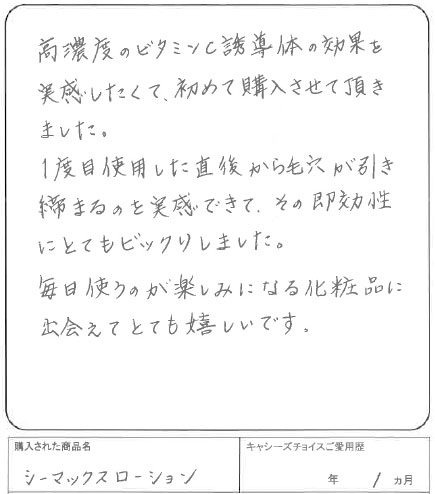 高濃度のビタミンC誘導体の効果を
実感したくて、初めて購入させて頂き
ました。
1度目使用した直後から毛穴が引き
締まるのを実感できて、その即効性
にとてもビックリしました。
毎日使うのが楽しみになる化粧品に
出会えてとても嬉しいです。
購入された商品名
シーマックスローション
キャシーズチョイスご愛用歴
年 1 ヵ月